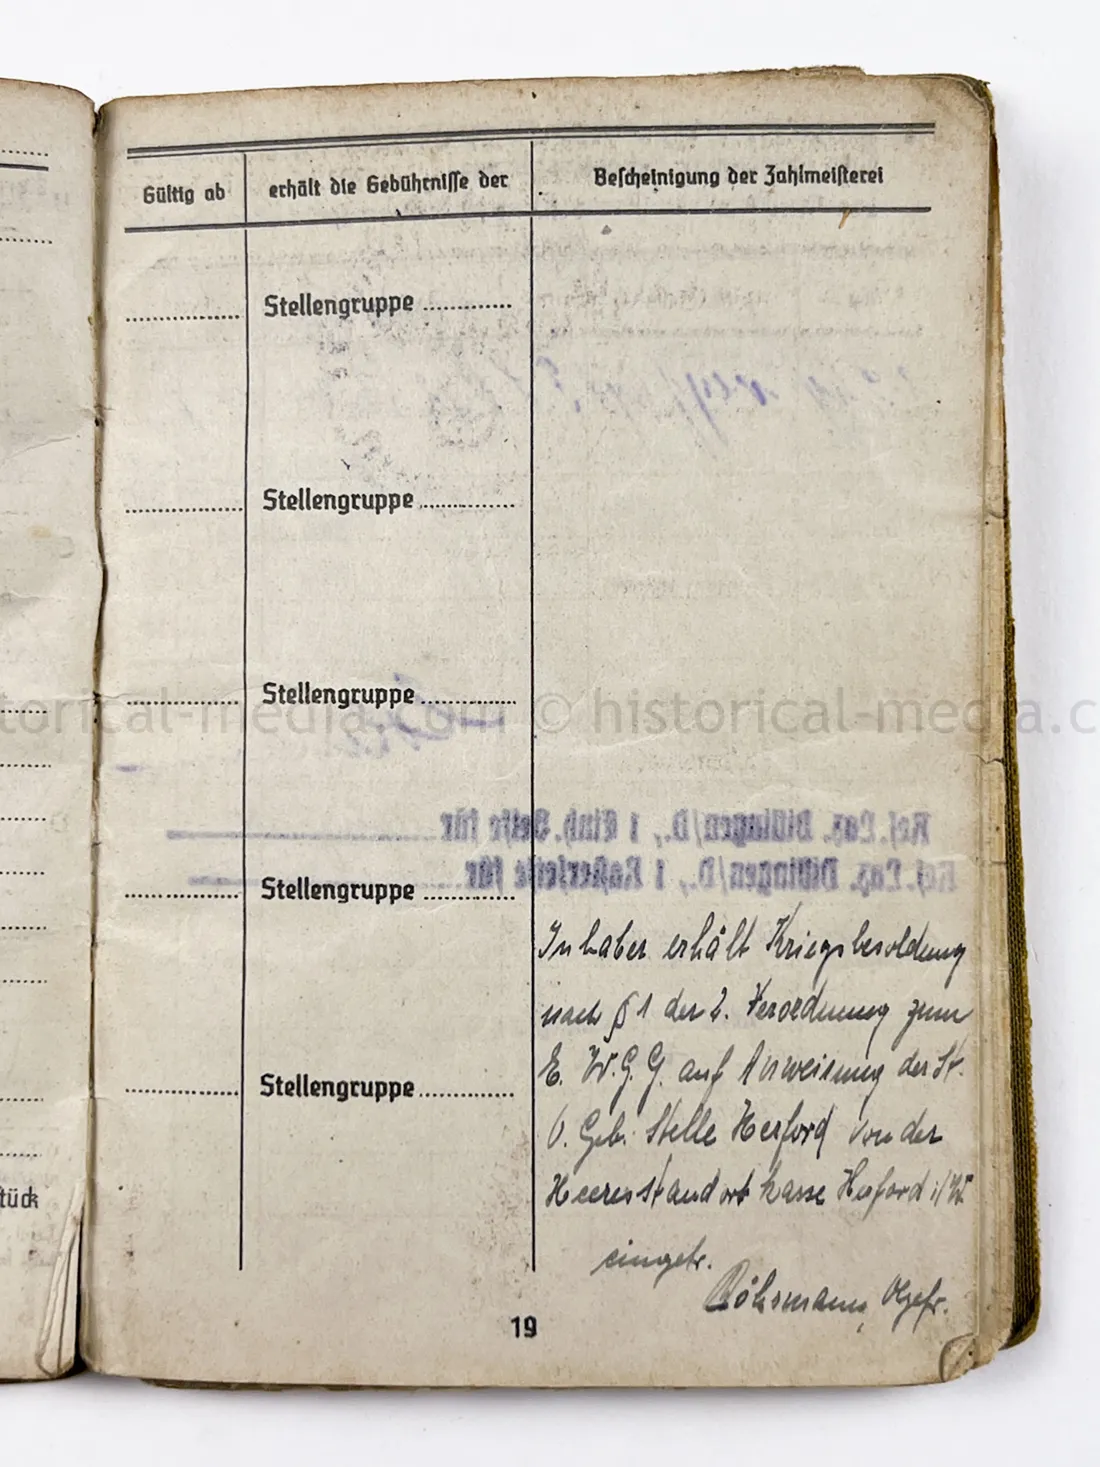 Gültig ab
erhält die Gebührnisse der
Bescheinigung der Zahlmeisterei
Stellengruppe
Stellengruppe
Stellengruppe
historical-media.com © historical-media.c
Res. Laz. Dillingen/D., 1 Einh. Seife für
Res. Laz. Dillingen/D., 1 Rasierseife für
Stellengruppe
Inhaber erhält Kriegsbesoldung
nach § 1 der 2. Verordnung zum
E. W. G. G. auf Anweisung der St.
O. Geb. Stelle Herford von der
Stellengruppe
Heeresstandortkasse Herford i/W
eingetr.
Röhsmann, Ogefr.
tück
19